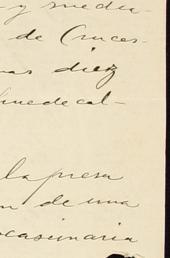 y media
de Cruces-
mas diez
puede cal-
la presa
en de una
ocasionaria